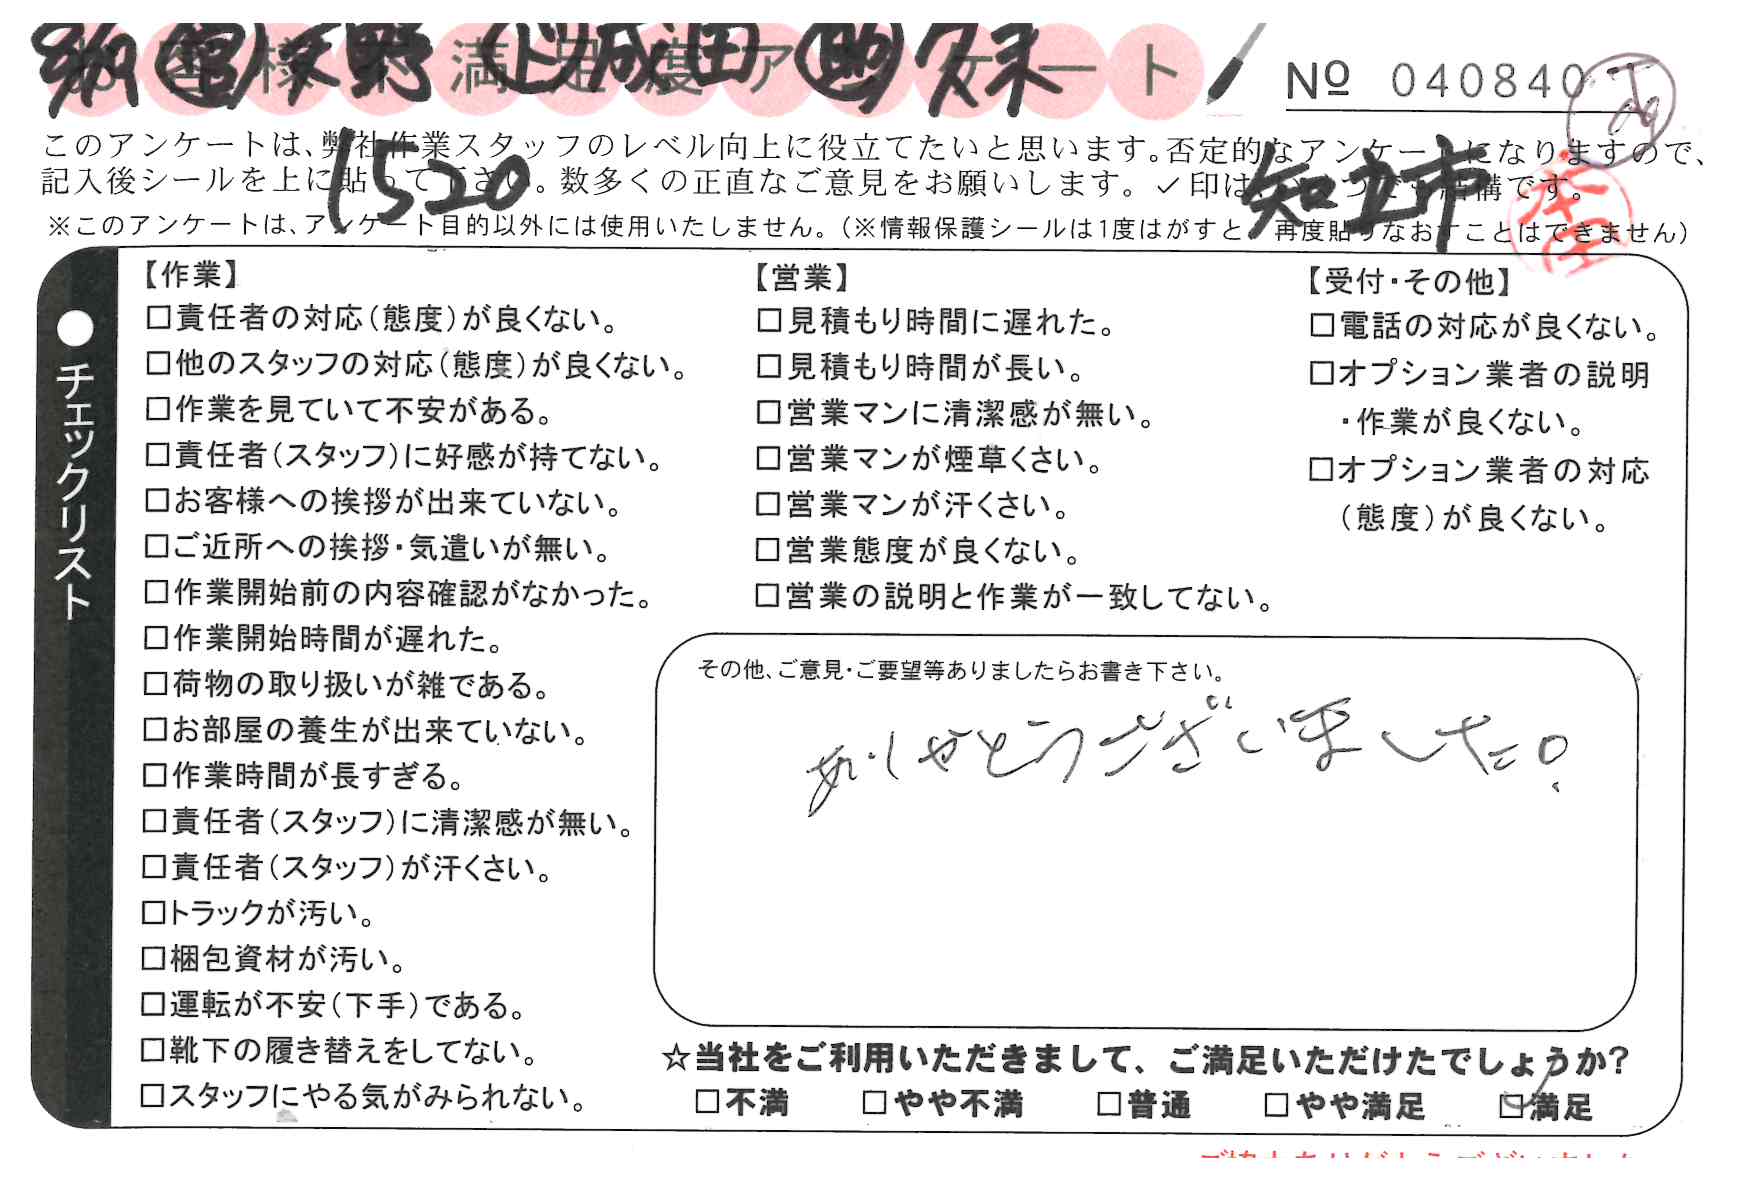 お客様不満足度アンケート
No 040840
このアンケートは、弊社作業スタッフのレベル向上に役立てたいと思います。否定的なアンケートになりますので、
記入後シールを上に貼って下さい。数多くの正直なご意見をお願いします。✓印はいくつでも結構です。
1520
知立市
※このアンケートは、アンケート目的以外には使用いたしません。(※情報保護シールは1度はがすと、再度貼りなおすことはできません)
●チェックリスト
【作業】
□責任者の対応(態度)が良くない。
□他のスタッフの対応(態度)が良くない。
□作業を見ていて不安がある。
□責任者(スタッフ)に好感が持てない。
□お客様への挨拶が出来ていない。
□ご近所への挨拶・気遣いが無い。
□作業開始前の内容確認がなかった。
□作業開始時間が遅れた。
□荷物の取り扱いが雑である。
□お部屋の養生が出来ていない。
□作業時間が長すぎる。
□責任者(スタッフ)に清潔感が無い。
□責任者(スタッフ)が汗くさい。
□トラックが汚い。
□梱包資材が汚い。
□運転が不安(下手)である。
□靴下の履き替えをしてない。
□スタッフにやる気がみられない。
【営業】
□見積もり時間に遅れた。
□見積もり時間が長い。
□営業マンに清潔感が無い。
□営業マンが煙草くさい。
□営業マンが汗くさい。
□営業態度が良くない。
□営業の説明と作業が一致してない。
【受付・その他】
□電話の対応が良くない。
□オプション業者の説明
・作業が良くない。
□オプション業者の対応
(態度)が良くない。
その他、ご意見・ご要望等ありましたらお書き下さい。
ありがとうございました。
☆当社をご利用いただきまして、ご満足いただけたでしょうか?
□不満 □やや不満 □普通 □やや満足 ☑満足